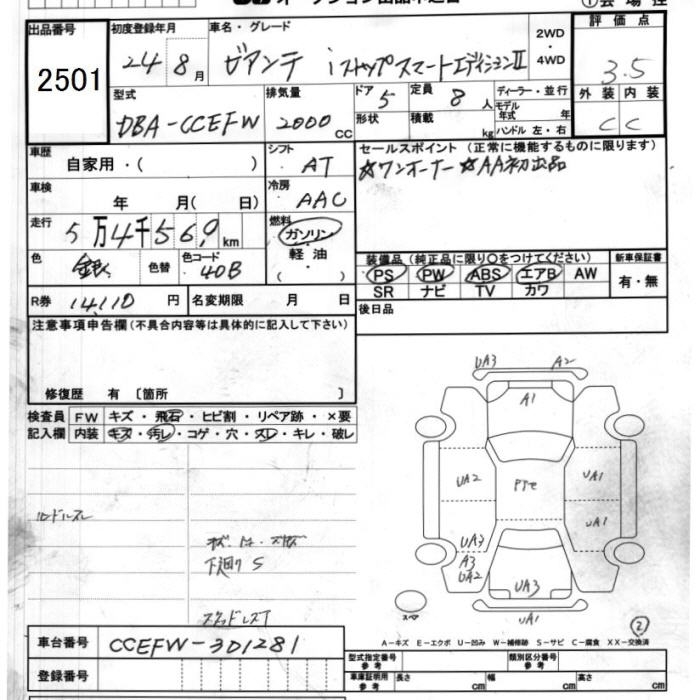 オークション出品申込書
①会場控
出品番号 2501
初度登録年月 24 8月
車名・グレード ビアンテ iストップスマートエディションⅡ
2WD・4WD
評価点 3.5
外装 C 内装 C
型式 DBA-CCEFW
排気量 2000 CC
ドア 5
形状
定員 8人
積載 kg
ディーラー・並行
モデル年式 年
ハンドル 左・右
車歴 自家用・( )
シフト AT
セールスポイント (正常に機能するものに限ります)
☆ワンオーナー ☆AA初出品
車検 年 月( 日)
冷房 AAC
走行 5万4千569km
燃料 ガソリン・軽油・( )
色 銀 色替 色コード 40B
装備品 (純正品に限り○をつけてください)
PS PW ABS エアB AW
SR ナビ TV カワ
新車保証書 有・無
R券 14,110円 名変期限 月 日
後日品
注意事項申告欄(不具合内容等は具体的に記入して下さい)
修復歴 有 〔箇所 〕
検査員記入欄
FW キズ・飛石・ヒビ割・リペア跡・×要
内装 キズ・汚レ・コゲ・穴・スレ・キレ・破レ
下廻り S
UA3 A2
A1
UA2 UA1
UA1
UA3
A3
UA2
UA3
UA1
スペア
②
A-キズ E-エクボ U-凹み W-補修跡 S-サビ C-腐食 XX-交換済
車台番号 CCEFW-301281
登録番号
型式指定番号 参考 類別区分番号 参考
車庫証明用 参考 長さ cm 幅 cm 高さ cm